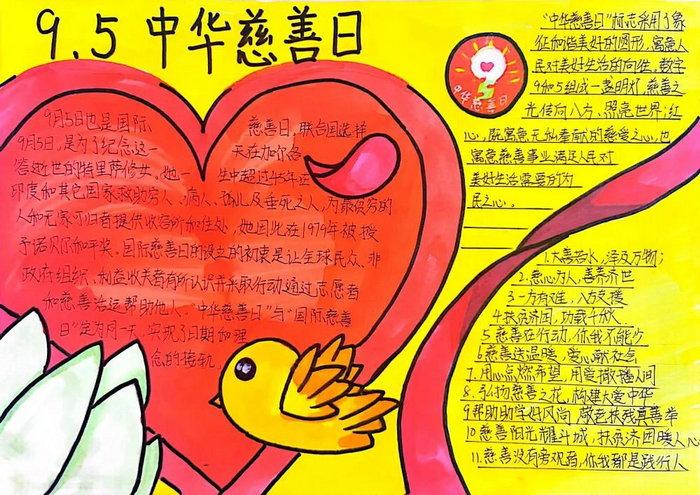 9.5中华慈善日
9月5日也是国际
慈善日，联合国选择
9月5日，是为了纪念这一
天在加尔各
答逝世的特里萨修女，她一
生中超过45年在
印度和其它国家救助穷人、病人、孤儿及垂死之人，为最贫穷的
人和无家可归者提供收容所和住处，她因此在1979年被授
予诺贝尔和平奖。国际慈善日的设立的初衷是让全球民众、非
政府组织、利益收关者有所认识并采取行动，通过志愿者
和慈善活运帮助他人。"中华慈善日"与"国际慈善
日"定为同一天，实现了日期和理
念的接轨。
中华慈善日
"中华慈善日"标志采用了象
征和谐美好的圆形，寓意人
民对美好生活的向往。数字
9和5组成一盏明灯，慈善之
光传向八方、照亮世界；红
心，既寓意无私奉献的慈爱之心，也
寓意慈善事业满足人民对
美好生活需要的为
民之心。
1.大善若水，泽及万物；
2.慈心为人，善养济世
3.一方有难，八方支援
4扶贫济困，功载千秋
5慈善在行动，你我不能少
6慈善送温暖，爱心献社会
7.用心点燃希望，用爱撒播人间
8.弘扬慈善之花，构建大爱中华
9帮助助学好风尚 敬老扶残真善举
10.慈善阳光耀斗城，扶贫济困暖人心
11.慈善没有旁观者，你我都是践行人